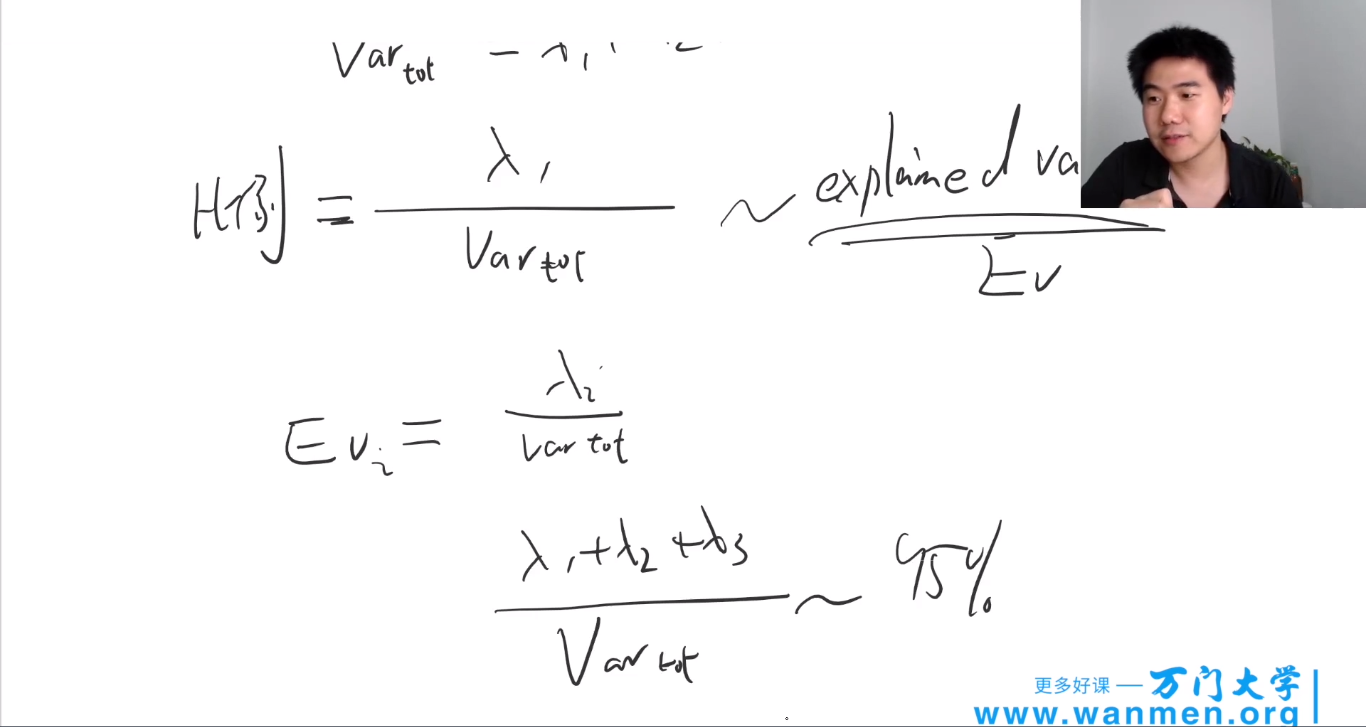 Var tot
比例 = λ1 / Var tot ~ explained va
EV
EVi = λi / var tot
λ1 + λ2 + λ3 / Var tot ~ 95%
更多好课 — 万门大学
www.wanmen.org